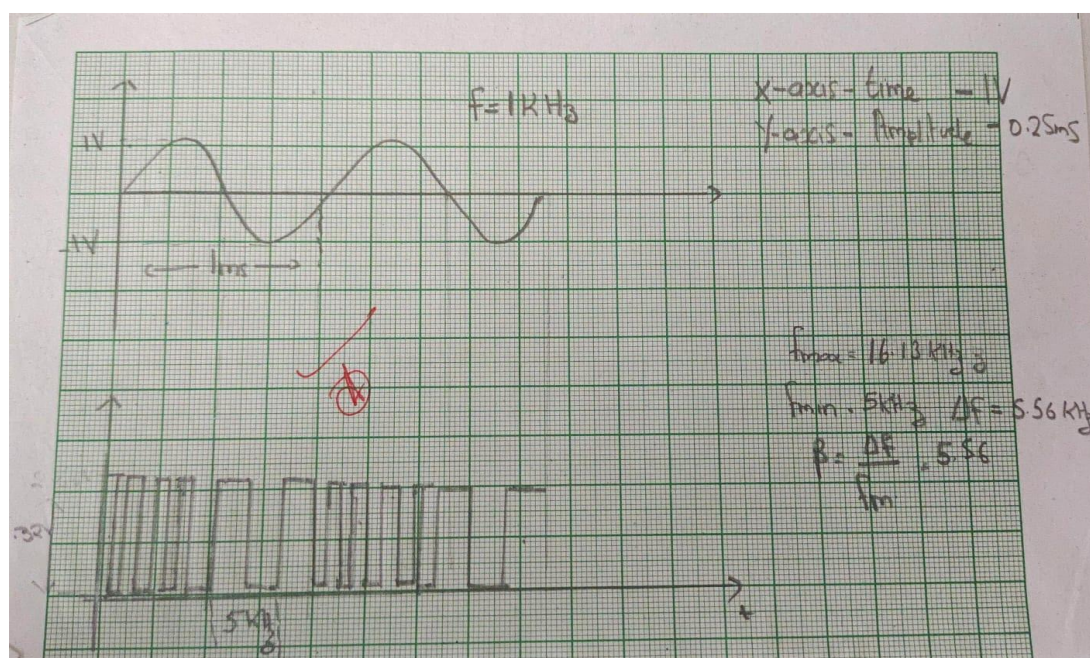 f=1KHz
X-axis-time -1V
Y-axis- Amplitude - 0.25ms
1V
-1V
1ms
fmax = 16.13 kHz
fmin = 5kHz Δf = 5.56 KHz
β = Δf / fm = 5.56
5KHz
t